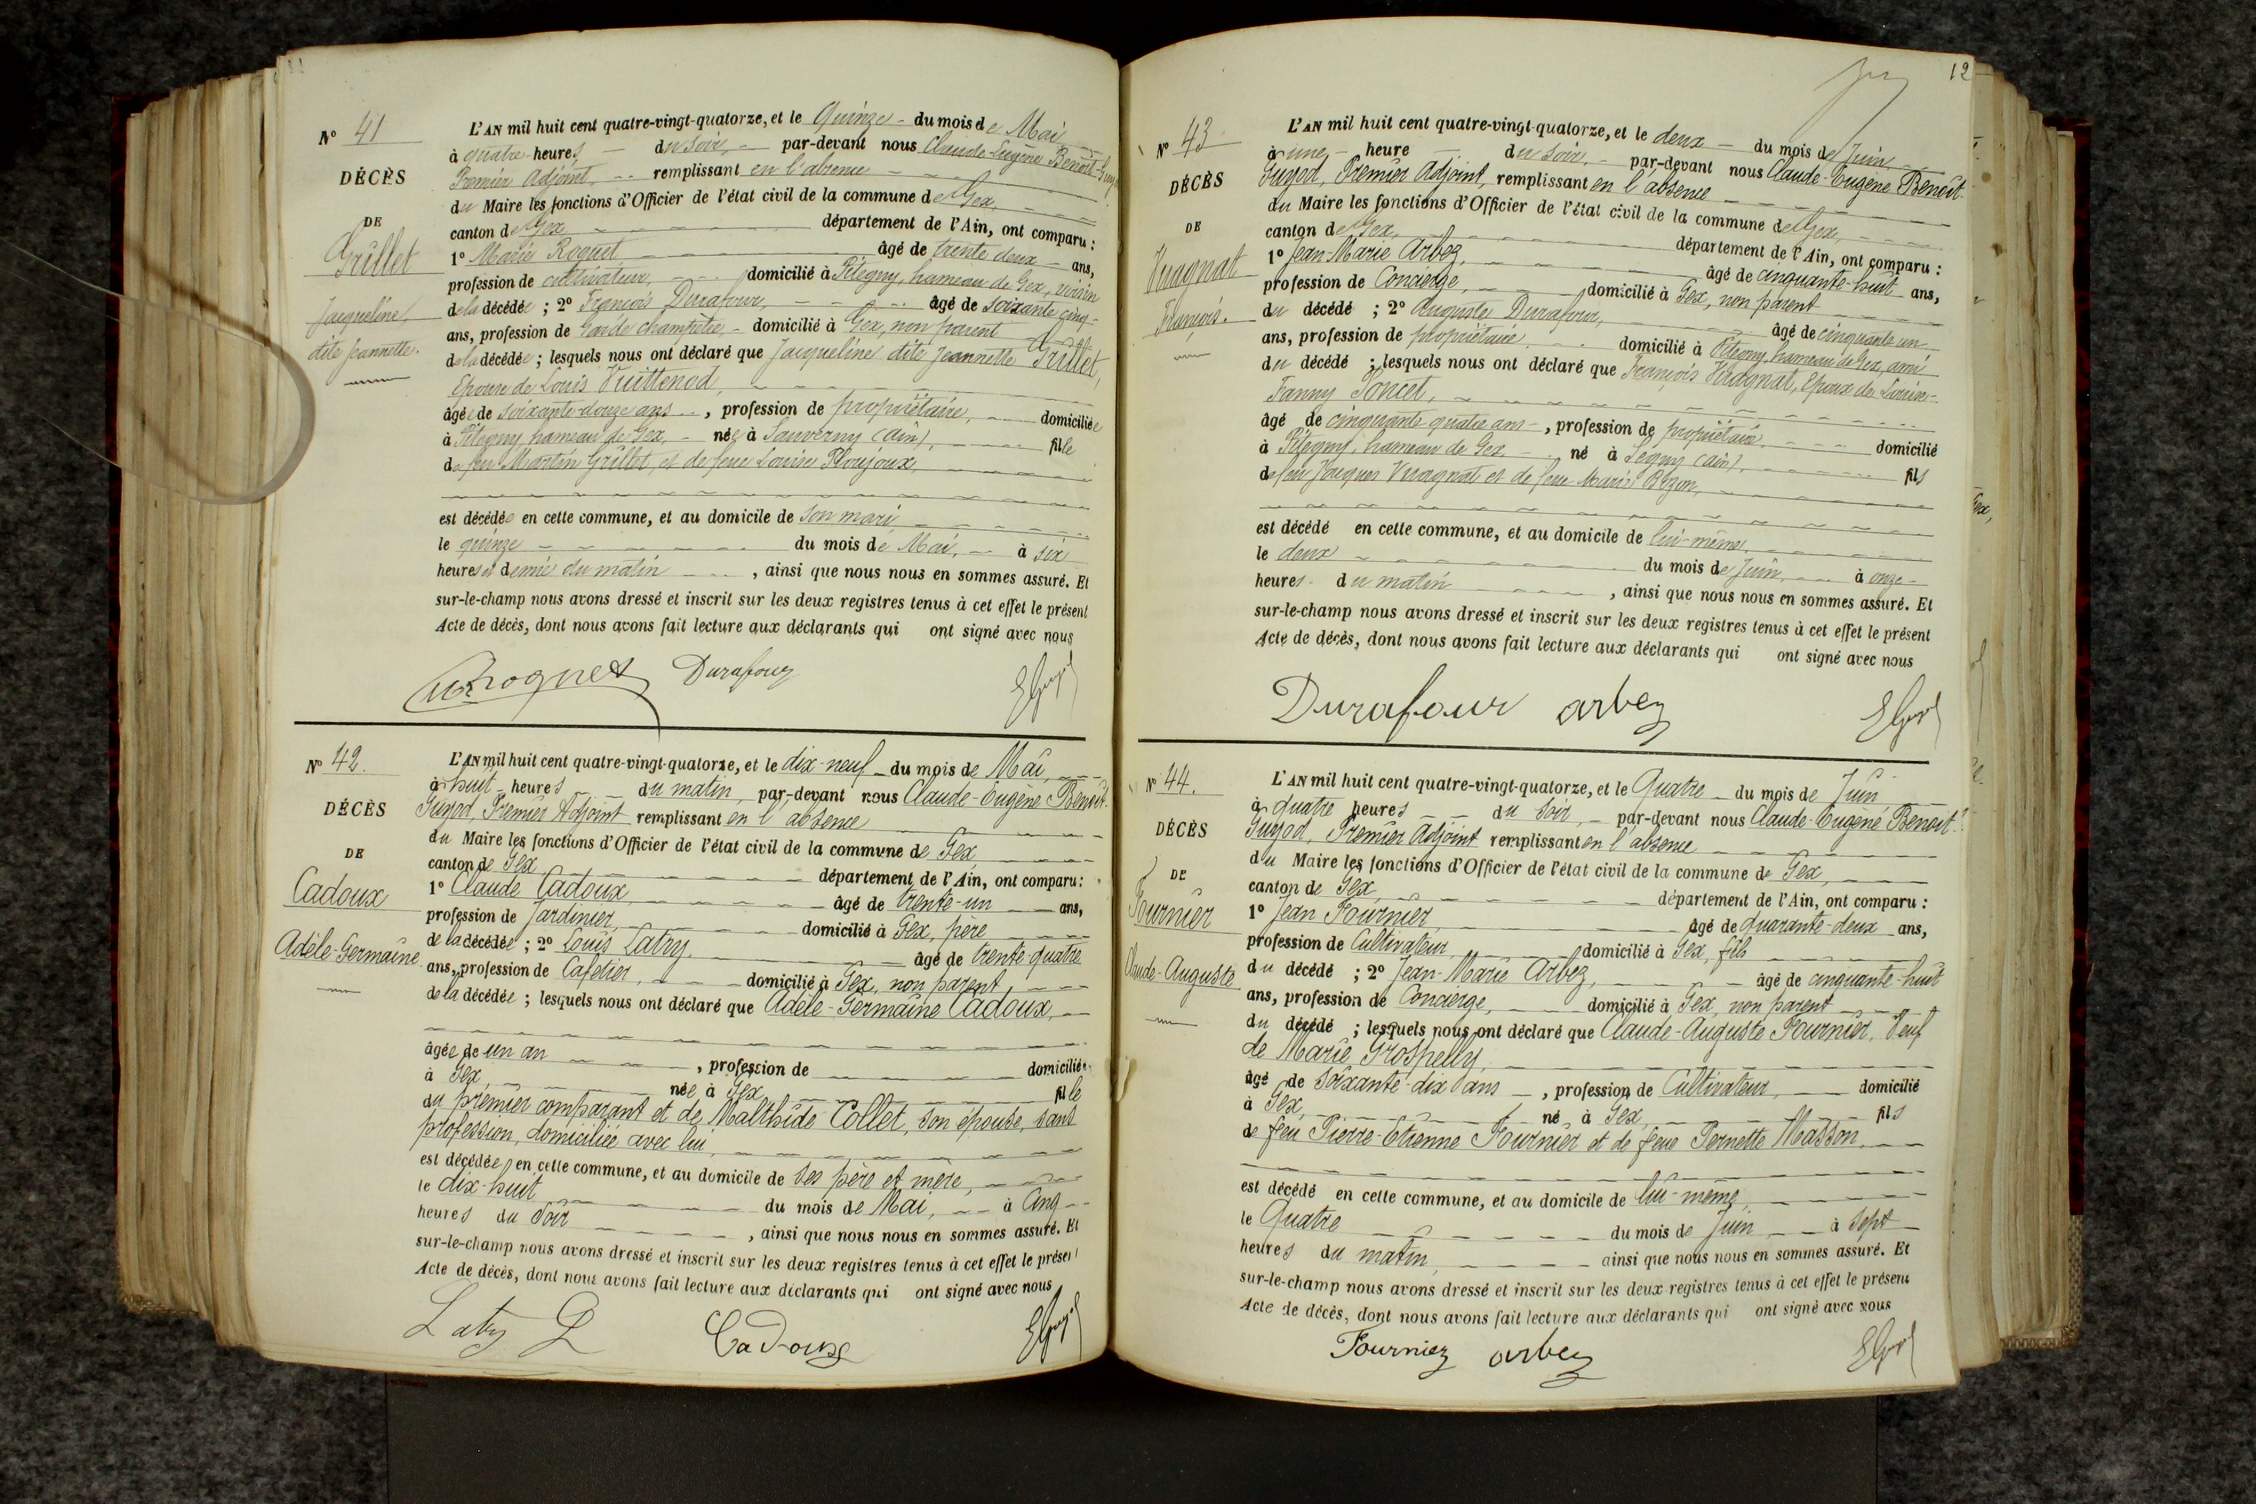 N° 41
DÉCÈS
DE
Grillet
Jacqueline
dite Jeannette.
L'AN mil huit cent quatre-vingt-quatorze, et le Quinze du mois de Mai
à quatre heures du soir, par-devant nous Claude-Eugène Benoit-Guyod
Premier Adjoint, remplissant en l'absence
du Maire les fonctions d'Officier de l'état civil de la commune de Gex,
canton de Gex département de l'Ain, ont comparu :
1° Marie Roquet âgé de trente deux ans,
profession de cultivateur, domicilié à Pitegny, hameau de Gex, voisin
de la décédée ; 2° François Durafour, âgé de soixante cinq
ans, profession de Garde champêtre, domicilié à Gex, non parent
de la décédée ; lesquels nous ont déclaré que Jacqueline dite Jeannette Grillet,
Epouse de Louis Vuittenod,
âgée de soixante-douze ans, profession de propriétaire, domiciliée
à Pitegny, hameau de Gex, née à Sauverny (Ain), fille
de feu Martin Grillet, et de feue Louise Ploujoux,
est décédée en cette commune, et au domicile de son mari
le quinze du mois de Mai, à six
heures et demie du matin, ainsi que nous nous en sommes assuré. Et
sur-le-champ nous avons dressé et inscrit sur les deux registres tenus à cet effet le présent
Acte de décès, dont nous avons fait lecture aux déclarants qui ont signé avec nous
Roquet Durafour EGuyod
N° 42.
DÉCÈS
DE
Cadoux
Adèle-Germaine
L'AN mil huit cent quatre-vingt-quatorze, et le dix-neuf du mois de Mai,
à huit heures du matin, par-devant nous Claude-Eugène Benoit-
Guyod, Premier Adjoint remplissant en l'absence
du Maire les fonctions d'Officier de l'état civil de la commune de Gex
canton de Gex département de l'Ain, ont comparu :
1° Claude Cadoux âgé de trente-un ans,
profession de Jardinier, domicilié à Gex, père
de la décédée ; 2° Louis Latry, âgé de trente quatre
ans, profession de Cafetier, domicilié à Gex, non parent
de la décédée ; lesquels nous ont déclaré que Adèle-Germaine Cadoux,
âgée de un an, profession de domiciliée
à Gex, née à Gex fille
du premier comparant et de Malthide Collet, son épouse, sans
profession, domiciliée avec lui,
est décédée en cette commune, et au domicile de ses père et mère,
le dix-huit du mois de Mai, à Cinq
heures du Soir, ainsi que nous nous en sommes assuré. Et
sur-le-champ nous avons dressé et inscrit sur les deux registres tenus à cet effet le présent
Acte de décès, dont nous avons fait lecture aux déclarants qui ont signé avec nous
Latry L Cadoux EGuyod
12
N° 43
DÉCÈS
DE
Vuagnat
François.
L'AN mil huit cent quatre-vingt-quatorze, et le deux du mois de Juin
à une heure du soir, par-devant nous Claude-Eugène Benoit-
Guyod, Premier Adjoint, remplissant en l'absence
du Maire les fonctions d'Officier de l'état civil de la commune de Gex,
canton de Gex, département de l'Ain, ont comparu :
1° Jean-Marie Arbez, âgé de cinquante-huit ans,
profession de Concierge, domicilié à Gex, non parent
du décédé ; 2° Auguste Durafour, âgé de cinquante un
ans, profession de propriétaire domicilié à Pitegny, hameau de Gex, ami
du décédé ; lesquels nous ont déclaré que François Vuagnat, Epoux de Louise-
Fanny Poncet,
âgé de cinquante quatre ans, profession de propriétaire domicilié
à Pitegny, hameau de Gex né à Segny (Ain), fils
de feu Jacques Vuagnat et de feue Marie Bizon,
est décédé en cette commune, et au domicile de lui-même,
le deux du mois de Juin, à onze
heures du matin, ainsi que nous nous en sommes assuré. Et
sur-le-champ nous avons dressé et inscrit sur les deux registres tenus à cet effet le présent
Acte de décès, dont nous avons fait lecture aux déclarants qui ont signé avec nous
Durafour arbez EGuyod
N° 44.
DÉCÈS
DE
Fournier
Claude-Auguste
L'AN mil huit cent quatre-vingt-quatorze, et le Quatre du mois de Juin
à quatre heures du soir, par-devant nous Claude-Eugène Benoit-
Guyod, Premier Adjoint remplissant en l'absence
du Maire les fonctions d'Officier de l'état civil de la commune de Gex,
canton de Gex, département de l'Ain, ont comparu :
1° Jean Fournier âgé de quarante-deux ans,
profession de Cultivateur, domicilié à Gex, fils
du décédé ; 2° Jean-Marie Arbez, âgé de cinquante-huit
ans, profession de Concierge, domicilié à Gex, non parent
du décédé ; lesquels nous ont déclaré que Claude-Auguste Fournier, Veuf
de Marie Grospelly,
âgé de soixante-dix ans, profession de Cultivateur, domicilié
à Gex, né à Gex, fils
de feu Pierre-Etienne Fournier et de feue Pernette Masson,
est décédé en cette commune, et au domicile de lui-même,
le Quatre du mois de Juin à sept
heures du matin, ainsi que nous nous en sommes assuré. Et
sur-le-champ nous avons dressé et inscrit sur les deux registres tenus à cet effet le présent
Acte de décès, dont nous avons fait lecture aux déclarants qui ont signé avec nous
Fournier arbez EGuyod